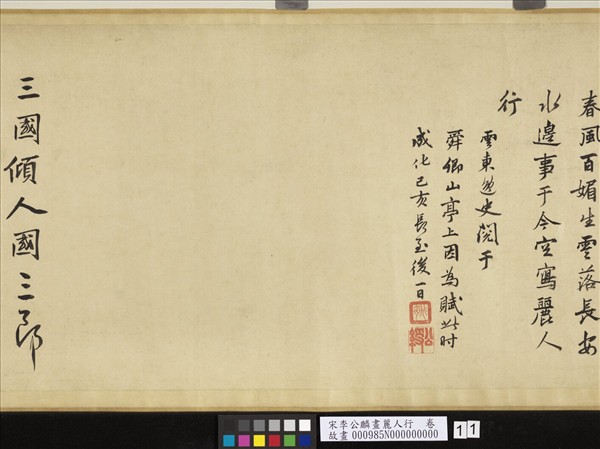 春風百媚生雲落長安
水邊事于今空寫麗人
行
雲東逸史閱于
舜卿山亭上因為賦此时
成化己亥長至後一日
三國傾人國三郎
宋李公麟畫麗人行 卷
故畫 000985N000000000
11